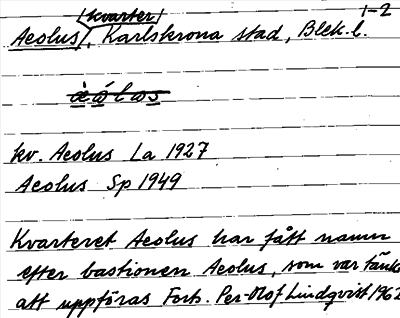 1-2
Aeolus, kvarter, Karlskrona stad, Blek. l.
kv. Aeolus La 1927
Aeolus Sp 1949
Kvarteret Aeolus har fått namn
efter bastionen Aeolus, som var tänk
att uppföras Forts. Per-Olof Lindqvist 1962